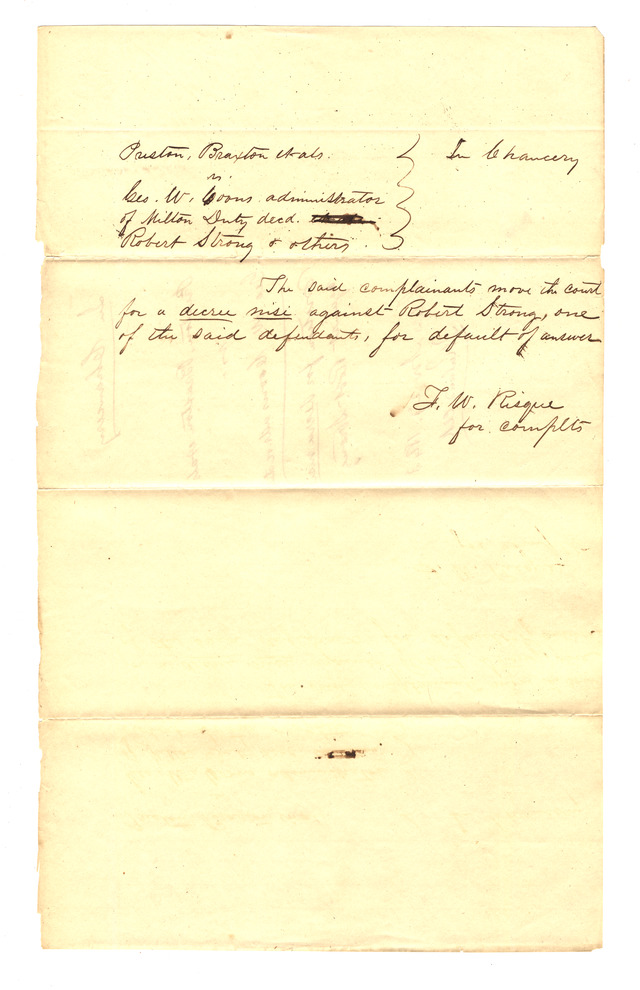 Preston, Braxton et als. } In Chancery
vs.
Geo. W. Coons administrator
of Milton Duty decd.
Robert Strong & others.
The said complainants move the court
for a decree nisi against Robert Strong, one
of the said defendants, for default of answer
F. W. Risque
for complts